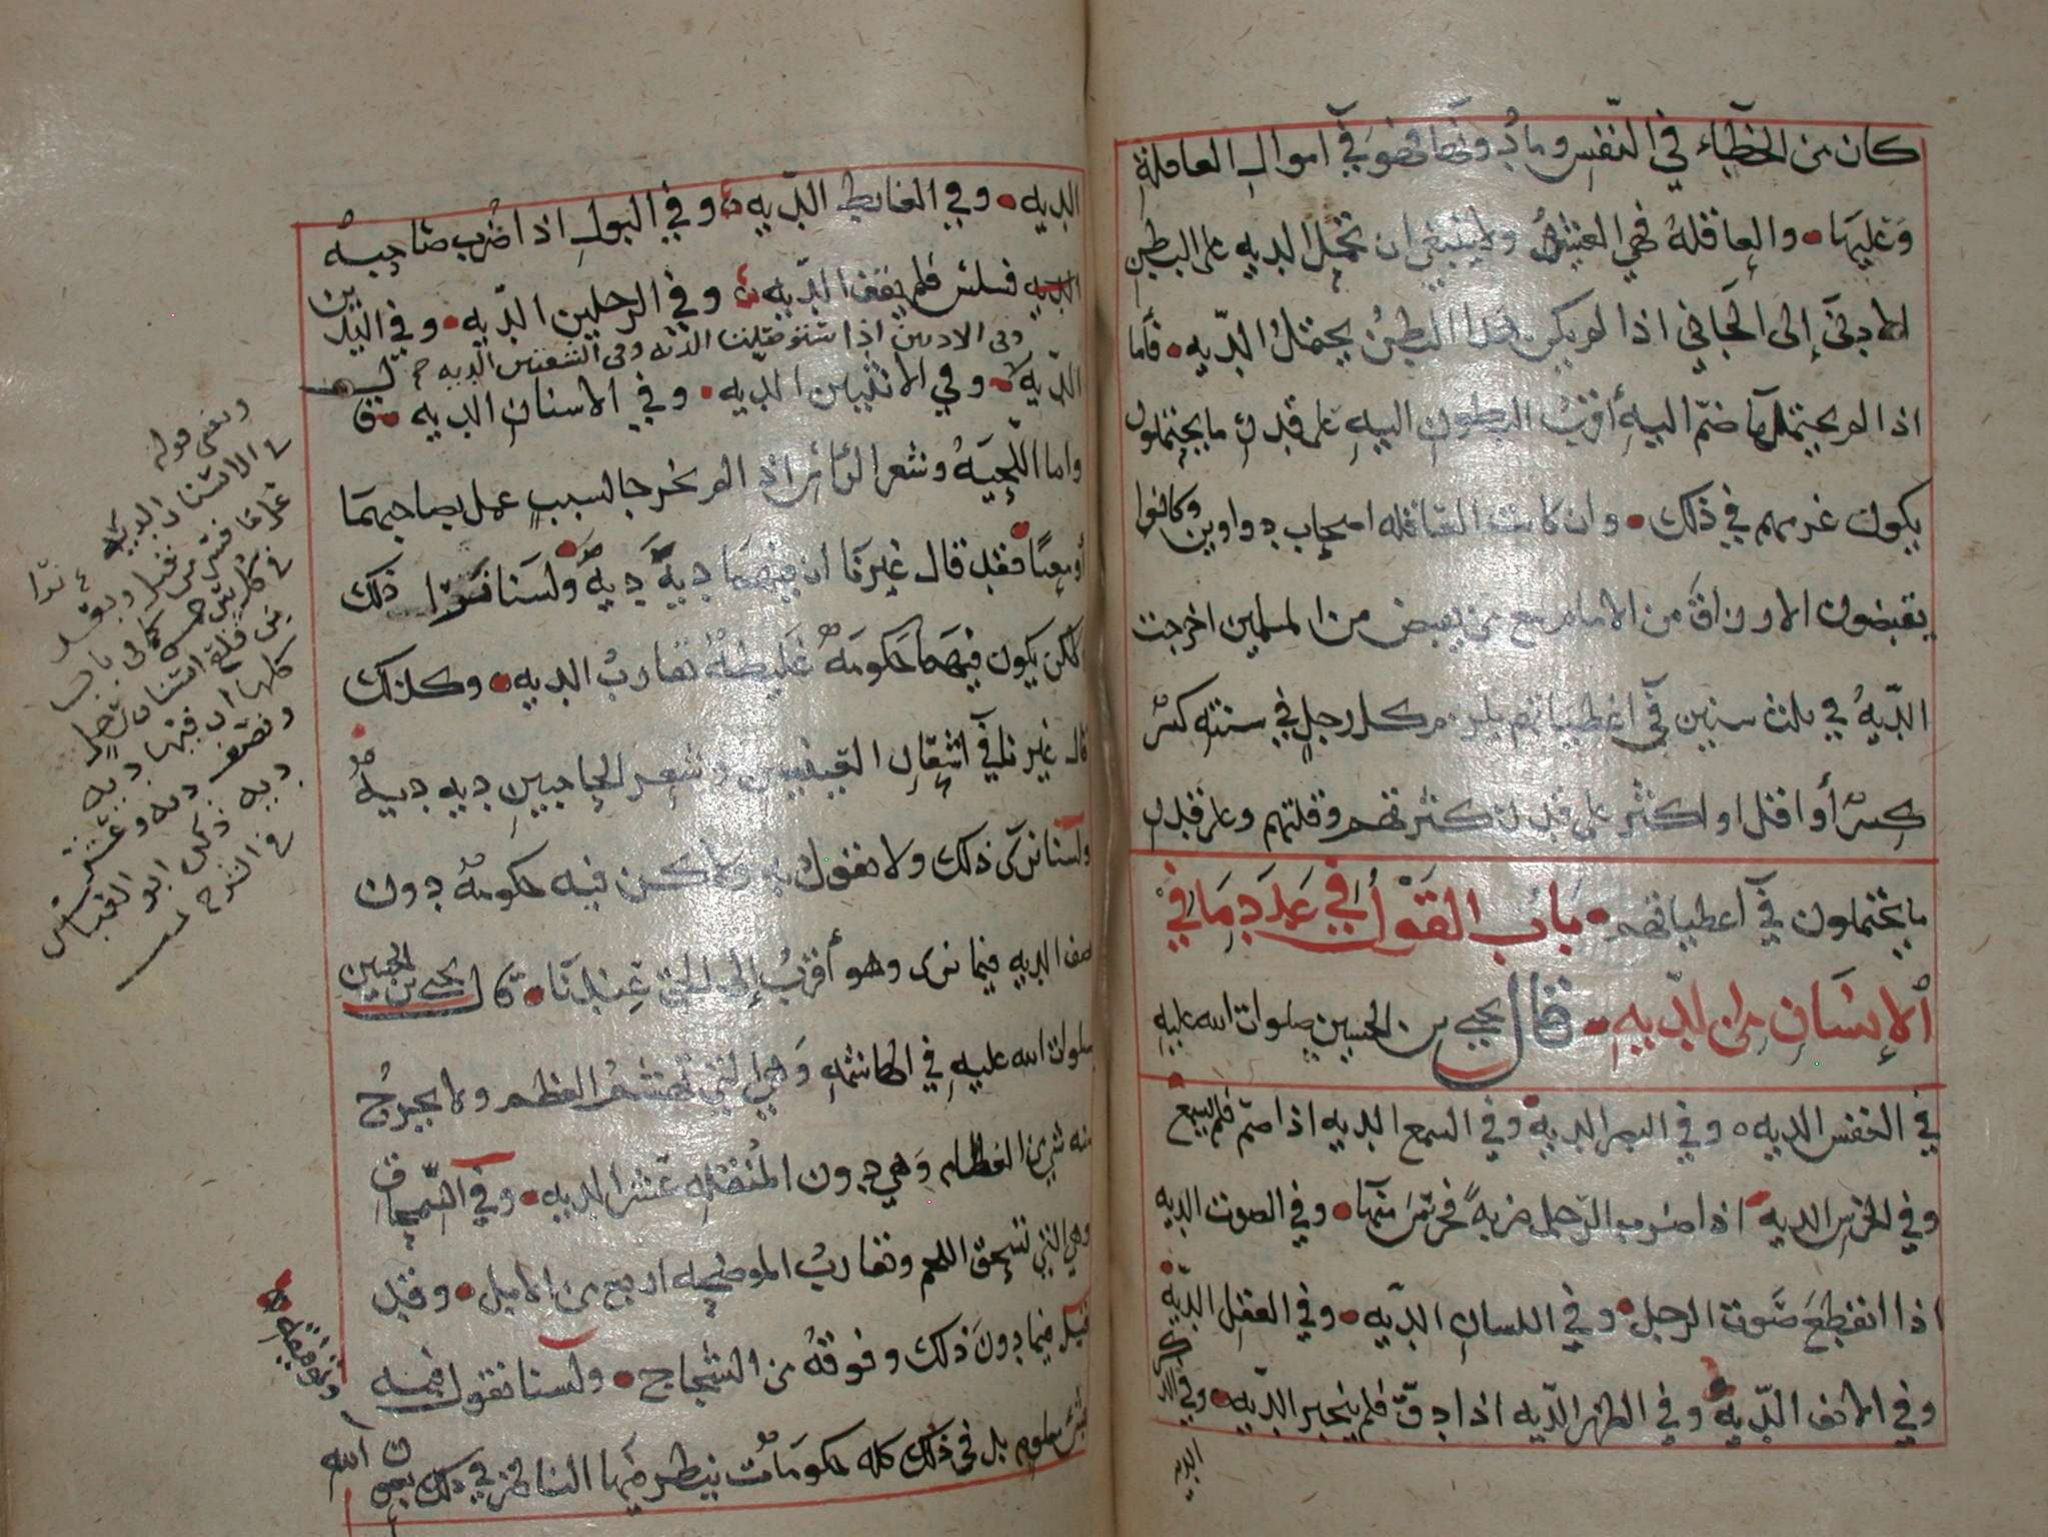 كان من الخطاء في النفس وما دونها فهو في اموال العاقلة
وعليها والعاقلة فهي العشيرة ولا ينبغي ان تحمل الديه على البطن
الادنى إلى الجاني اذا لم يكن هذا البطن يحتمل الديه فاما
اذا لم يحتملها ضم اليه أقرب البطون اليه على قدر ما يحتملون
يكون غرمهم في ذلك وان كانت العاقله اصحاب دواوين وكانوا
يقبضون الارزاق من الامام مع من يقبض من المسلمين اخرجت
الديه في ثلث سنين في اعطياتهم يلزم كل رجل في سنته كسر
كسر أو اقل او اكثر على قدر كثرتهم وقلتهم وعلى قدر
ما يحتملون في أعطياتهم باب القول في عدد ما في
الإنسان من الديه قال يحيى بن الحسين صلوات الله عليه
في النفس الديه وفي البصر الديه وفي السمع الديه اذا صم فلم يسمع
وفي الخرس الديه اذا ضرب الرجل ضربة فخرس منها وفي الصوت الديه
اذا انقطع صوت الرجل وفي اللسان الديه وفي العقل الديه
وفي الانف الديه وفي الظهر الديه اذا دق فلم ينجبر الديه وفي الذكر
الديه
الديه وفي الغايط الديه وفي البول اذا ضرب صاحبه
الديه فسلس فلم يقف الديه وفي الرجلين الديه وفي اليدين
وفى الاذنين اذا استوصلتا الديه وفى الشفتين الديه
الديه وفي الانثيين الديه وفي الاسنان الديه
واما اللحيه وشعر الرأس اذا لم يخرجا لسبب عمل بصاحبهما
فقد قال غيرنا ان فيهما ديه ديه ولسنا نرى ذلك
لكن يكون فيهما حكومة غليظة تقارب الديه وكذلك
قال غيرنا في اشفار العينين وشعر الحاجبين ديه ديه
ولسنا نرى ذلك ولا نقول به ولاكن فيه حكومة دون
نصف الديه فيما نرى وهو أقرب إلى الحق عندنا قال يحيى بن الحسين
صلوات الله عليه في الهاشمه وهي التي تهشم العظم ولا يخرج
منه شي من العظام وهي دون المنقله عشر الديه وفي السمحاق
وهي التي تسحق اللحم وتقارب الموضحه اربع من الابل وقد
قيل فيما دون ذلك وفوقه من الشجاج ولسنا نقول فيه
بشي معلوم بل فى ذلك كله حكومات ينظر فيها الناظر في ذلك بعون الله
وتوفيقه
ومعنى قوله
في الاسنان الديه
في كل سن خمس كما في باب
من قلع اسنان رجل
كلها ان فيها ديه
ونصف ديه وعشر
ديه ذكره ابو العباس
في الشرح